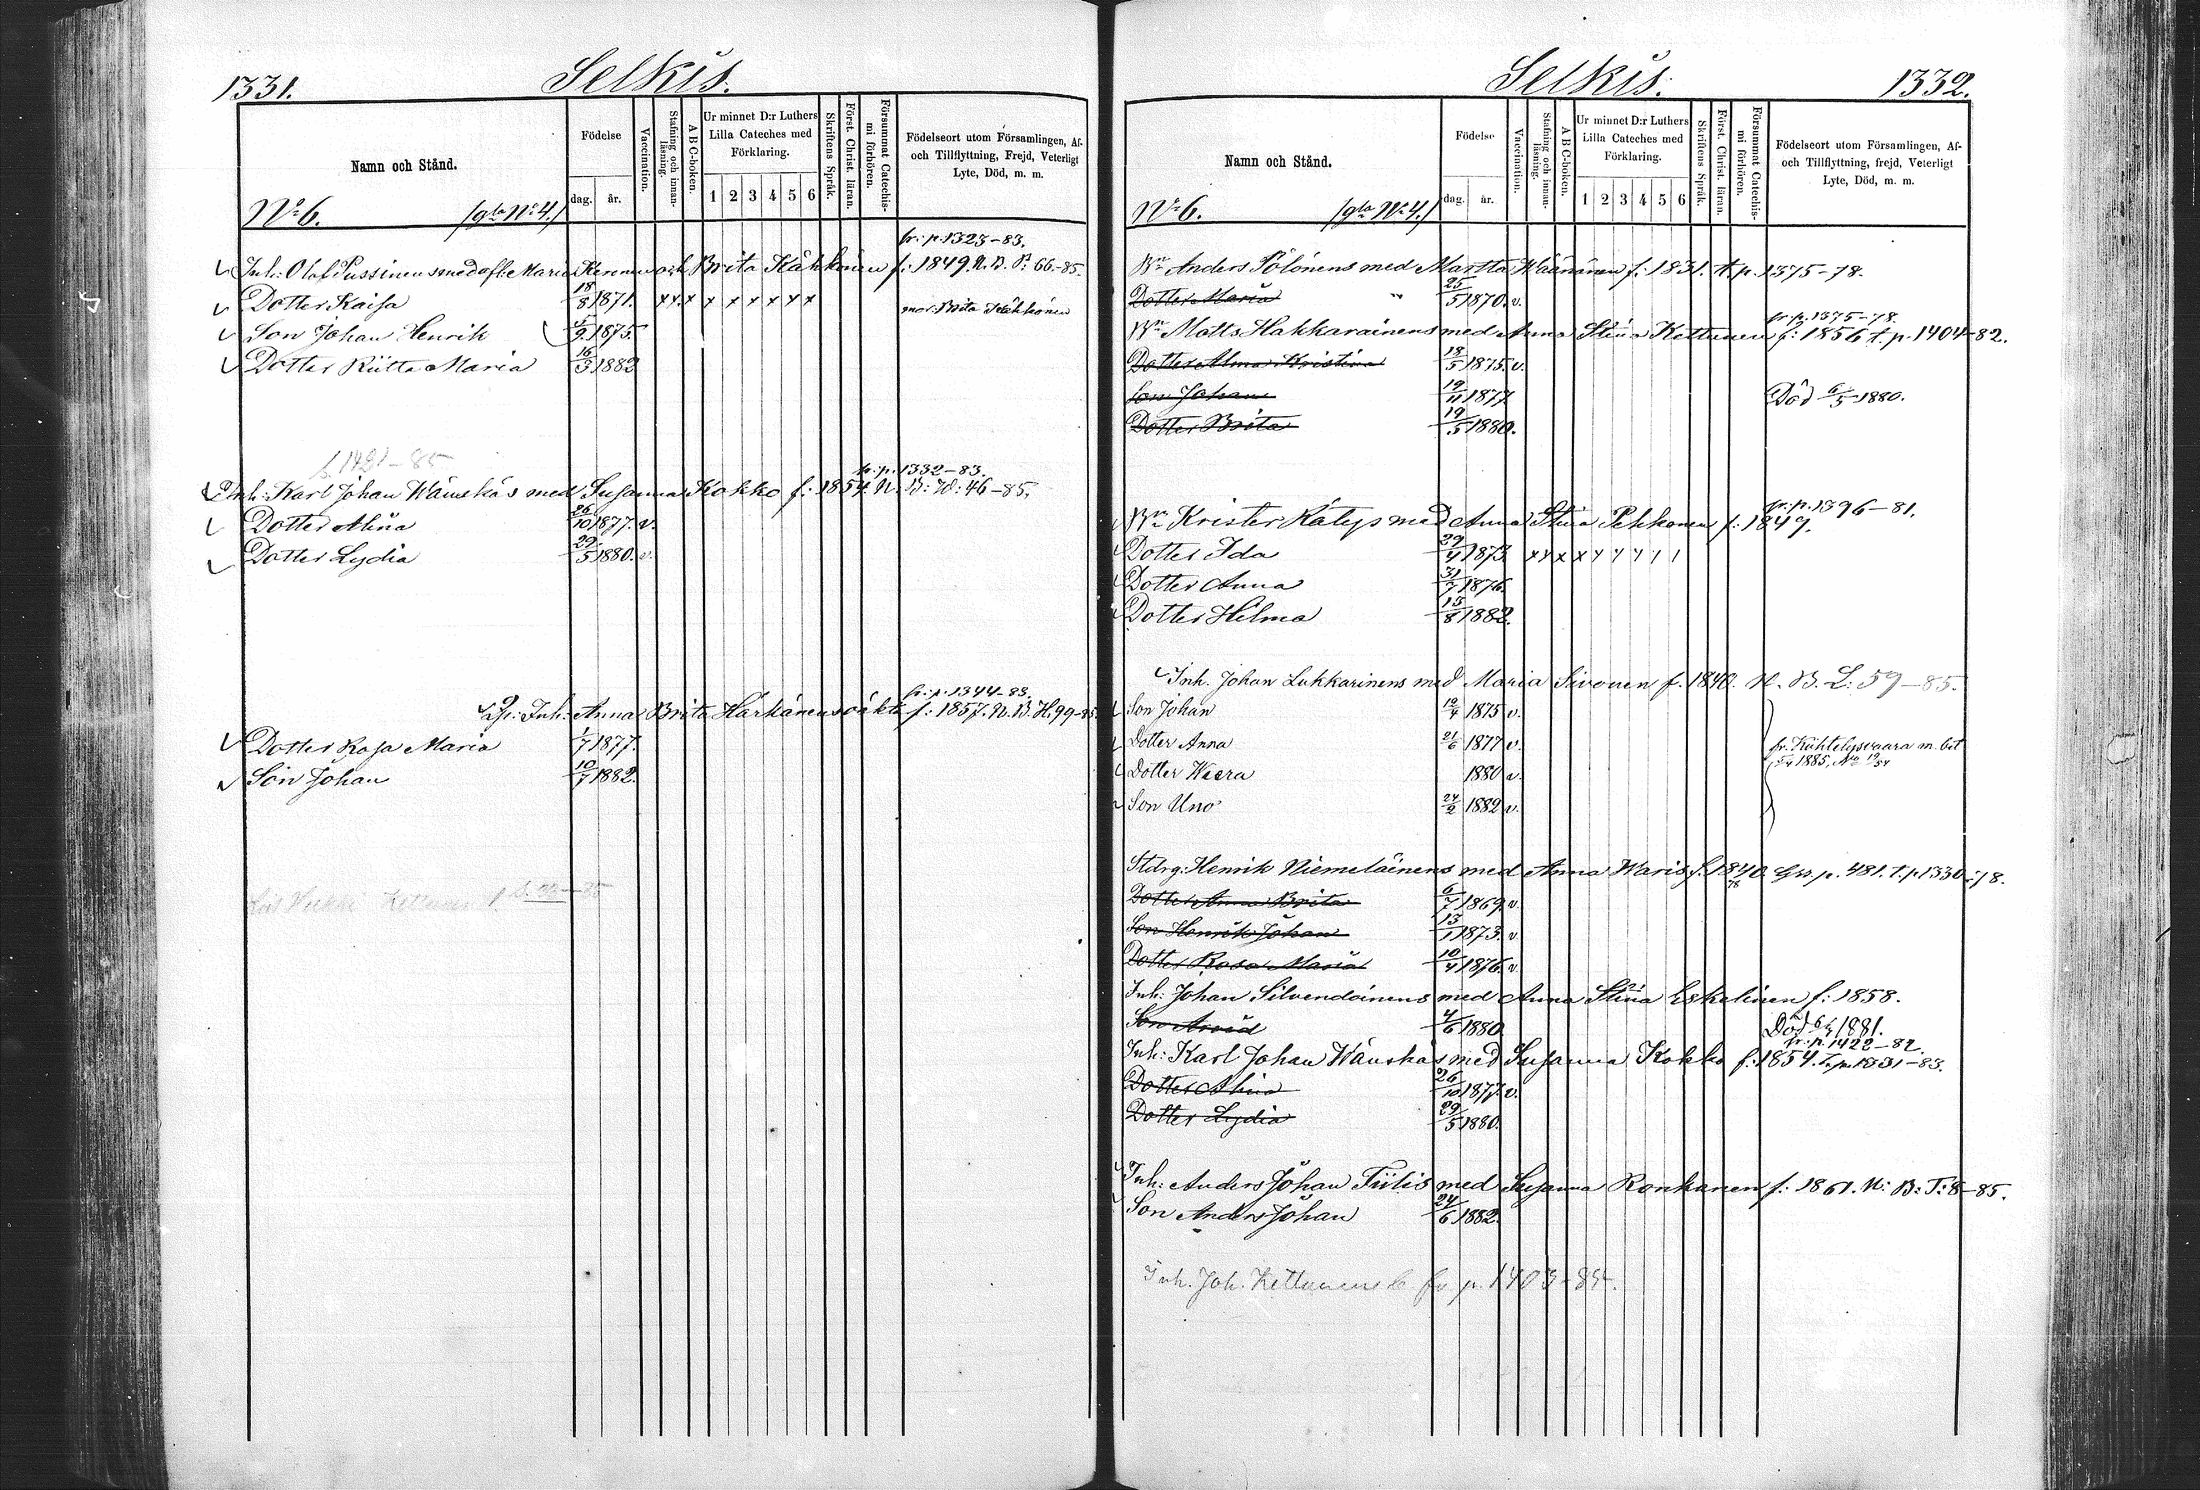 1331.
Selkis.
Namn och Stånd.
Födelse
dag.
år.
Vaccination.
Stafning och innanläsning.
A B C-boken.
Ur minnet D:r Luthers
Lilla Cateches med
Förklaring.
1 2 3 4 5 6
Skriftens Språk.
Först. Christ. läran.
Försummat Catechismi förhören.
Födelseort utom Församlingen, Af-
och Tillflyttning, Frejd, Veterligt
Lyte, Död, m. m.
No 6. /gla No 4./
fr: p. 1323-83.
Inh: Olof Pussinens med afl. Maria Keronen och Brita Kähkönen f: 1849. N. B. P: 66-85.
Dotter Kaisa 18/8 1871. x x x x x x x x x mor: Brita Kähkönen
Son Johan Henrik 1875.
Dotter Riitta Maria 16/3 1882
1421-85
fr: p. 1332-83.
Inh: Karl Johan Wänskäs med Susanna Kokko f: 1854. N. B: W: 46-85.
Dotter Alina 26/10 1877. v.
Dotter Lydia 29/5 1880. v.
fr: p. 1344-83.
Inh: Anna Brita Härkönens oäkta f: 1857. N. B. H. 99-85
Dotter Rosa Maria 1/7 1877.
Son Johan 10/7 1882.
Kettunen
1332.
Selkis.
Namn och Stånd.
Födelse
dag.
år.
Vaccination.
Stafning och innanläsning.
A B C-boken.
Ur minnet D:r Luthers
Lilla Cateches med
Förklaring.
1 2 3 4 5 6
Skriftens Språk.
Först. Christ. läran.
Försummat Catechismi förhören.
Födelseort utom Församlingen, Af-
och Tillflyttning, frejd, Veterligt
Lyte, Död, m. m.
No 6. /gla No 4./
Bn Anders Pölönens med Martta Wäänänen f: 1831. t. p. 1375-78.
Dotter Maria 25/5 1870. v.
fr: p. 1375-78.
Bn Matts Hakkarainens med Anna Stina Kettunen f: 1856 t. p. 1404-82.
Dotter Alma Kristina 18/5 1875. v.
Son Johan 19/11 1877 Död 6/5 1880.
Dotter Brita 19/5 1880.
fr: p. 1396-81.
Bn Krister Kätys med Anna Stina Pekkonen f: 1849.
Dotter Ida 29/4 1873 x x x x x x x 1 1
Dotter Anna 31/7 1876.
Dotter Hilma 15/8 1882.
Inh. Johan Lukkarinens med Maria Sivonen f. 1840. N. B. L: 59-85.
Son Johan 12/4 1875 v.
Dotter Anna 21/6 1877 v. fr. Kiihtelysvaara m. bet
Dotter Weera 1880 v. 5/4 1885, No 19/54
Son Uno 24/2 1882 v.
Stdrg: Henrik Niemeläinens med Anna Waris f. 1840. p. 481. t. p 1330-78.
Dotter Anna Brita 6/7 1869. v.
Son Henrik Johan 13/1 1873. v.
Dotter Rosa Maria 10/4 1876. v.
Inh: Johan Silvendoinens med Anna Stina Eskelinen f: 1858.
Son Arvid 4/6 1880. Död 1881.
fr: p. 1422-82.
Inh: Karl Johan Wänskäs med Susanna Kokko f: 1854. t. p. 1331-83.
Dotter Alina 26/10 1877. v.
Dotter Lydia 29/5 1880.
Inh: Anders Johan Tiilis med Susanna Ronkanen f: 1861. N: B: T: 8-85.
Son Anders Johan 24/6 1882.
Inh. Joh. Kettunens fr p. 1403-85.